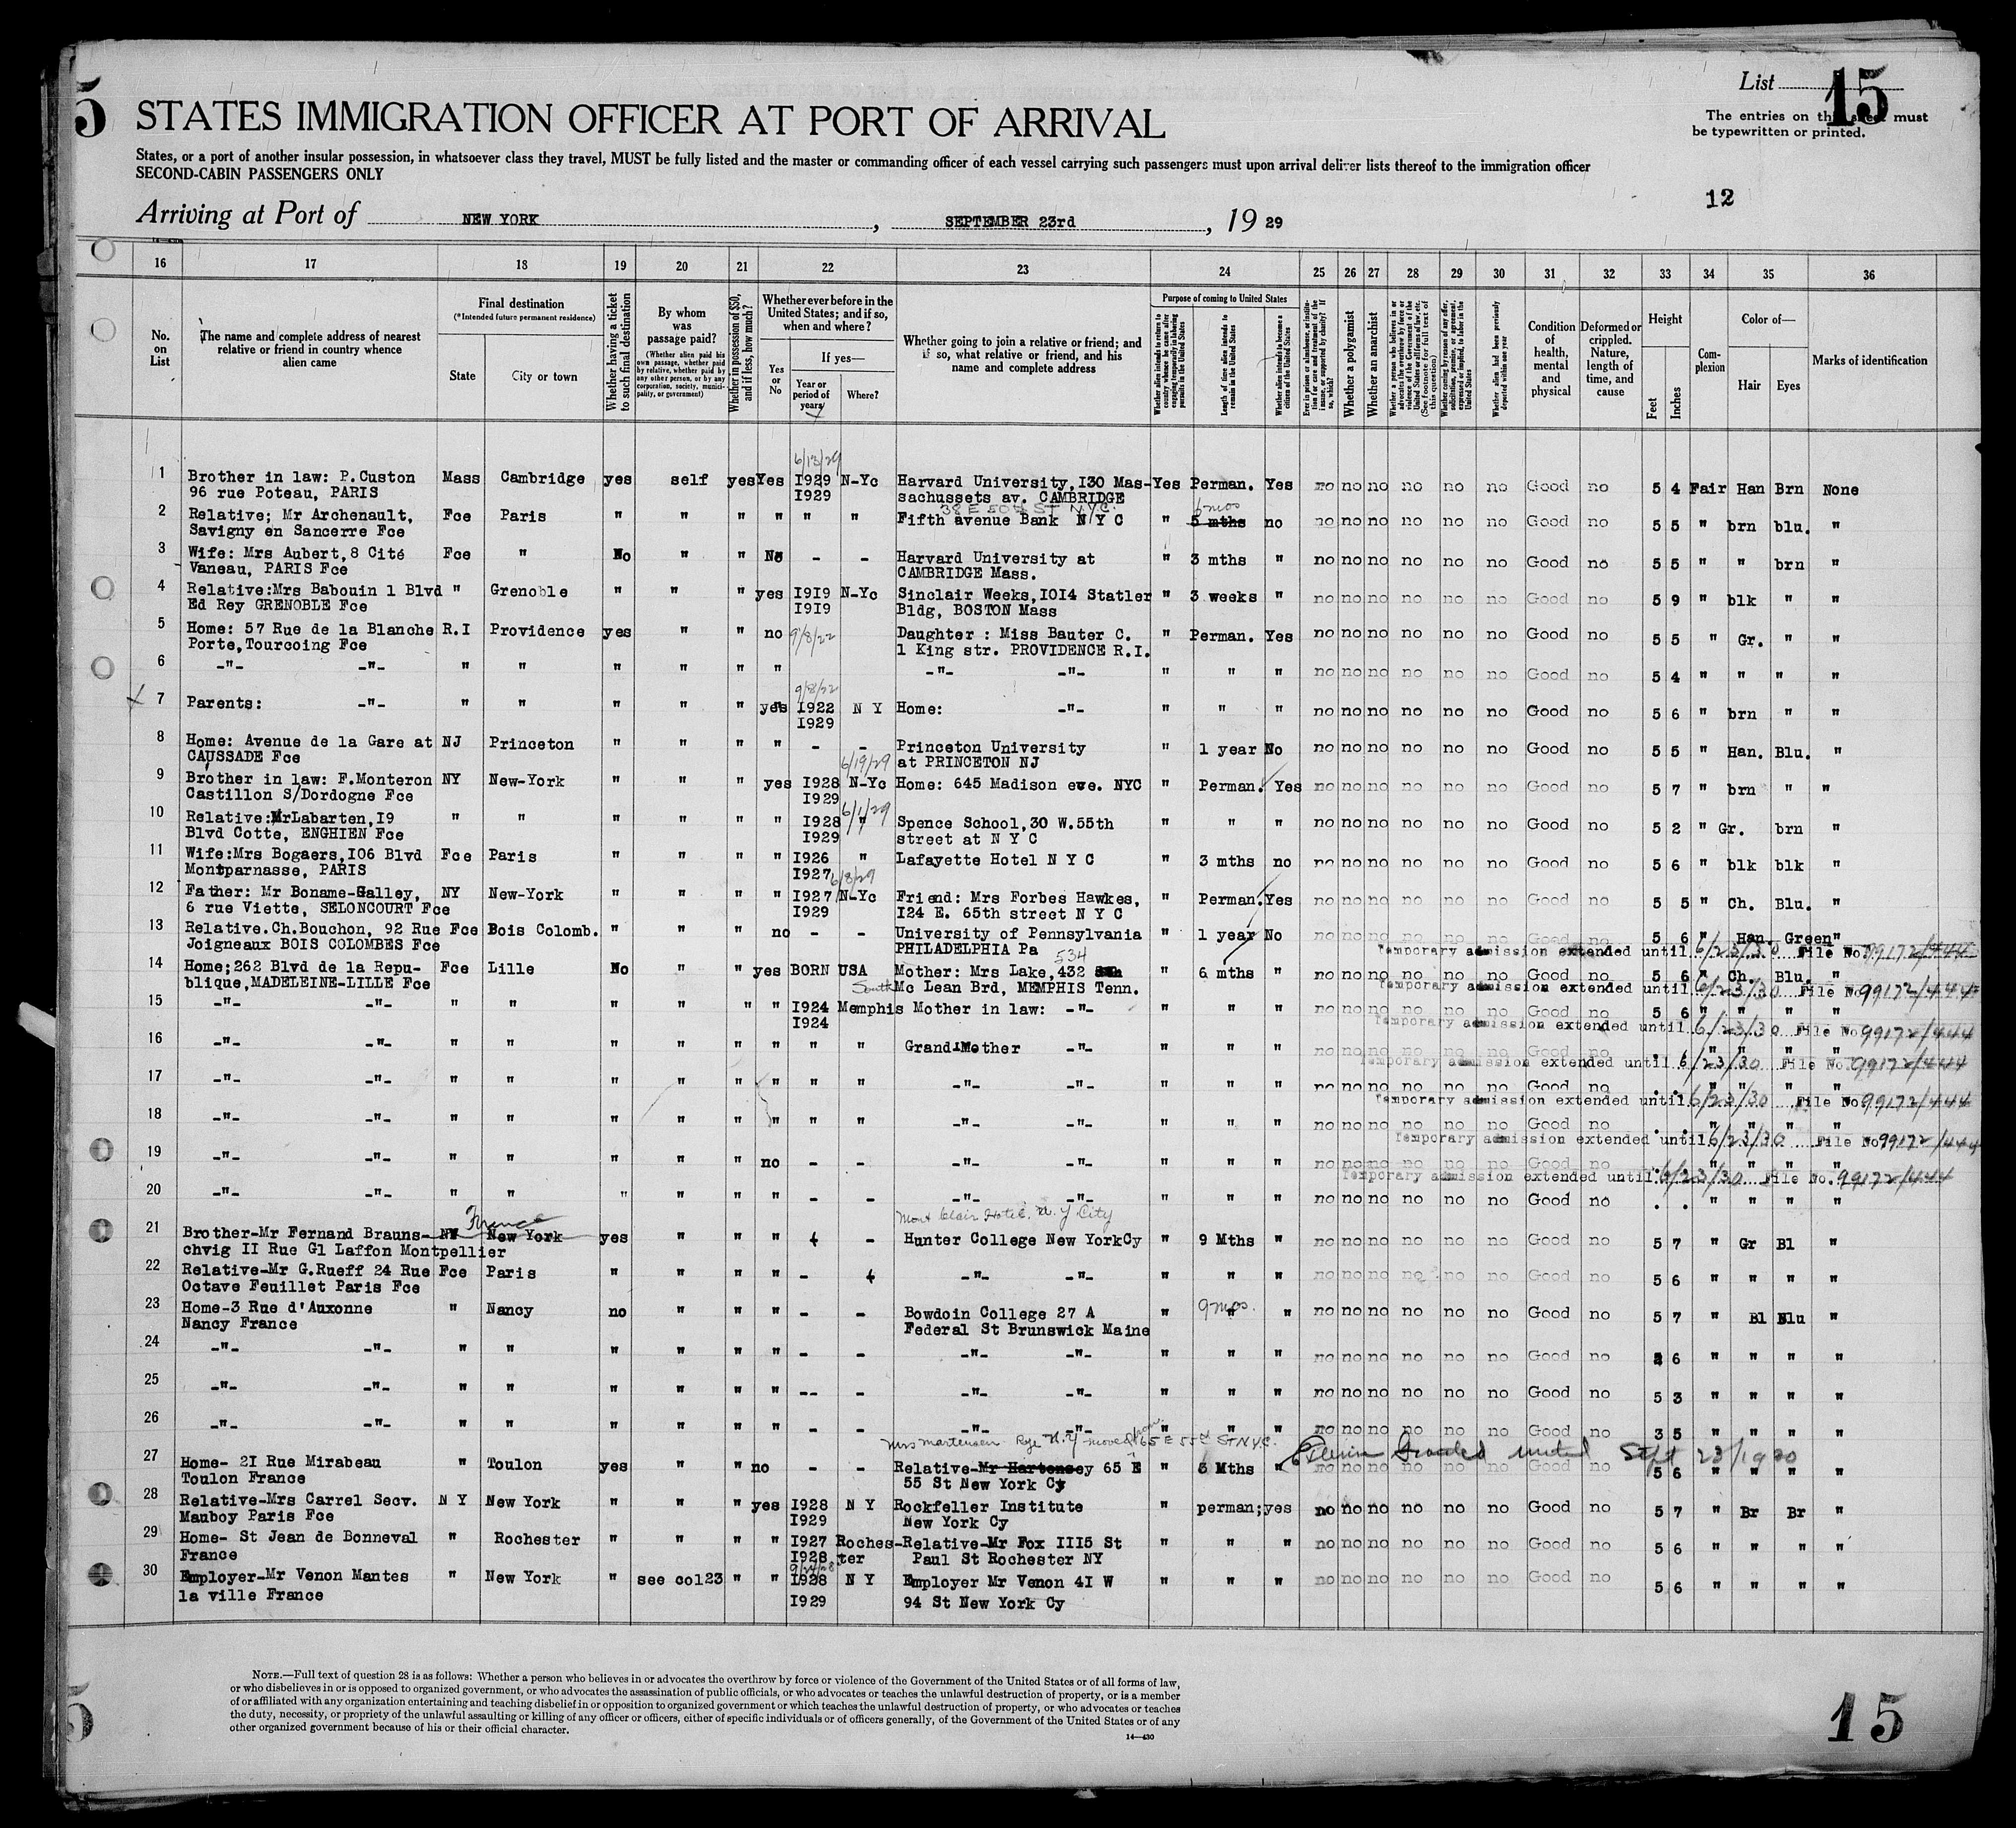 5
List 15
The entries on this sheet must
be typewritten or printed.
STATES IMMIGRATION OFFICER AT PORT OF ARRIVAL
States, or a port of another insular possession, in whatsoever class they travel, MUST be fully listed and the master or commanding officer of each vessel carrying such passengers must upon arrival deliver lists thereof to the immigration officer
SECOND-CABIN PASSENGERS ONLY
12
Arriving at Port of NEW YORK, SEPTEMBER 23rd, 19 29
16 17 18 19 20 21 22 23 24 25 26 27 28 29 30 31 32 33 34 35 36
No. on List
The name and complete address of nearest relative or friend in country whence alien came
Final destination (*Intended future permanent residence)
State
City or town
Whether having a ticket to such final destination
By whom was passage paid? (Whether alien paid his own passage, whether paid by relative, whether paid by any other person, or by any corporation, society, municipality, or government)
Whether in possession of $50, and if less, how much?
Whether ever before in the United States; and if so, when and where?
Yes or No
If yes—
Year or period of years
Where?
Whether going to join a relative or friend; and if so, what relative or friend, and his name and complete address
Purpose of coming to United States
Whether alien intends to return to country whence he came after engaging temporarily in laboring pursuits in the United States
Length of time alien intends to remain in the United States
Whether alien intends to become a citizen of the United States
Ever in prison or almshouse, or institution for care and treatment of the insane, or supported by charity? If so, which?
Whether a polygamist
Whether an anarchist
Whether a person who believes in or advocates the overthrow by force or violence of the Government of the United States or all forms of law, etc. (See footnote for full text of this question)
Whether coming by reason of any offer, solicitation, promise, or agreement, expressed or implied, to labor in the United States
Whether alien had been previously deported within one year
Condition of health, mental and physical
Deformed or crippled. Nature, length of time, and cause
Height
Feet
Inches
Complexion
Color of—
Hair
Eyes
Marks of identification
6/13/29
1 Brother in law: P.Custon Mass Cambridge yes self yes Yes I929 N-Yc Harvard University,I30 Mas- Yes Perman. Yes no no no no no no Good no 5 4 Fair Han Brn None
96 rue Poteau, PARIS I929 sachussets av. CAMBRIDGE
38 E 50th ST N.Y.C. 6 mos
2 Relative; Mr Archenault, Fce Paris " " " " " " Fifth avenue Bank N Y C " 5 mths no no no no no no no Good no 5 5 " brn blu. "
Savigny en Sancerre Fce
3 Wife: Mrs Aubert,8 Cité Fce " No " " No - - Harvard University at " 3 mths " no no no no no no Good no 5 5 " " brn "
Vaneau, PARIS Fce CAMBRIDGE Mass.
4 Relative:Mrs Babouin 1 Blvd " Grenoble " " " yes I9I9 N-Yc Sinclair Weeks,IOI4 Statler " 3 weeks " no no no no no no Good no 5 9 " blk " "
Ed Rey GRENOBLE Fce I9I9 Bldg, BOSTON Mass
5 Home: 57 Rue de la Blanche R.I Providence yes " " no 9/8/22 Daughter : Miss Bauter C. " Perman. Yes no no no no no no Good no 5 5 " Gr. " "
Porte,Tourcoing Fce 1 King str. PROVIDENCE R.I.
6 -"- -"- " " " " " " -"- -"- " " " no no no no no no Good no 5 4 " " " "
9/8/22
7 Parents: -"- " " " " " yes I922 N Y Home: -"- " " " no no no no no no Good no 5 6 " brn " "
I929
8 Home: Avenue de la Gare at NJ Princeton " " " " - - Princeton University " 1 year No no no no no no no Good no 5 5 " Han. Blu. "
CAUSSADE Fce 6/19/29 at PRINCETON NJ
9 Brother in law: F.Monteron NY New-York " " " yes I928 N-Yc Home: 645 Madison eve. NYC " Perman. Yes no no no no no no Good no 5 7 " brn " "
Castillon S/Dordogne Fce I929
6/1/29
10 Relative:MrLabarten,I9 " " " " " " I928 " Spence School,30 W.55th " " " no no no no no no Good no 5 2 " Gr. brn "
Blvd Cotte, ENGHIEN Fce I929 street at N Y C
11 Wife:Mrs Bogaers,IO6 Blvd Fce Paris " " " " I926 " Lafayette Hotel N Y C " 3 mths no no no no no no no Good no 5 6 " blk blk "
Montparnasse, PARIS I927
6/8/29
12 Father: Mr Boname-Galley, NY New-York " " " " I927 N-Yc Friend: Mrs Forbes Hawkes, " Perman. Yes no no no no no no Good no 5 5 " Ch. Blu. "
6 rue Viette, SELONCOURT Fce I929 I24 E. 65th street N Y C
13 Relative.Ch.Bouchon, 92 Rue Fce Bois Colomb. " " " no - - University of Pennsylvania " 1 year No no no no no no no Good no 5 6 " Han. Green "
Joigneaux BOIS COLOMBES Fce PHILADELPHIA Pa
Temporary admission extended until 6/23/30 File No. 99172/444
534
14 Home;262 Blvd de la Repu- Fce Lille No " " yes BORN USA Mother: Mrs Lake,432 " 6 mths " no no no no no no Good no 5 6 " Ch. Blu. "
blique,MADELEINE-LILLE Fce South Mc Lean Brd, MEMPHIS Tenn.
Temporary admission extended until 6/23/30 File No. 99172/444
15 -"- -"- " " " " " " I924 Memphis Mother in law: -"- " " " no no no no no no Good no 5 6 " " " "
I924
Temporary admission extended until 6/23/30 File No. 99172/444
16 -"- -"- " " " " " " " " Grand-Mother -"- " " " no no no no no no Good no . . " " " "
Temporary admission extended until 6/23/30 File No. 99172/444
17 -"- -"- " " " " " " " " -"- -"- " " " no no no no no no Good no . . " " " "
Temporary admission extended until 6/23/30 File No. 99172/444
18 -"- -"- " " " " " " " " -"- -"- " " " no no no no no no Good no . . " " " "
Temporary admission extended until 6/23/30 File No. 99172/444
19 -"- -"- " " " " " no - - -"- -"- " " " no no no no no no Good no . . " " " "
Temporary admission extended until 6/23/30 File No. 99172/444
20 -"- -"- " " " " " " - - -"- -"- " " " no no no no no no Good no . . " " " "
France Mont Clair Hotel. N. Y City
21 Brother-Mr Fernand Brauns- NY New York yes " " " - Hunter College New YorkCy " 9 Mths " no no no no no no Good no 5 7 " Gr Bl "
chvig II Rue Gl Laffon Montpellier
22 Relative-Mr G.Rueff 24 Rue Fce Paris " " " " - -"- -"- " " " no no no no no no Good no 5 6 " " " "
Octave Feuillet Paris Fce
9 mos.
23 Home-3 Rue d'Auxonne " Nancy no " " " - - Bowdoin College 27 A " " " no no no no no no Good no 5 7 " Bl Blu "
Nancy France Federal St Brunswick Maine
24 -"- -"- " " " " " " - - -"- -"- " " " no no no no no no Good no 6 " " " "
25 -"- -"- " " " " " " -- - -"- -"- " " " no no no no no no Good no 5 3 " " " "
26 -"- -"- " " " " " " - - -"- -"- " " " no no no no no no Good no 3 5 " " " "
Mrs Martensen Rye N.Y moved from 65 E 55th ST N.Y.C.
27 Home- 2I Rue Mirabeau " Toulon yes " " no - - Relative-Mr Hartensey 65 E " 6 Mths " no no no no no no Good no 5 6 " " " "
Toulon France 55 St New York Cy
until Sept 23/1930
28 Relative-Mrs Carrel Secv. N Y New York " " " yes I928 N Y Rockfeller Institute " perman; yes no no no no no no Good no 5 7 " Br Br "
Mauboy Paris Fce I929 New York Cy
29 Home- St Jean de Bonneval " Rochester " " " " I927 Roches- Relative-Mr Fox III5 St " " " no no no no no no Good no 5 6 " " " "
France I928 ter Paul St Rochester NY
30 Employer-Mr Venon Mantes " New York " see col23 " " I928 N Y Employer Mr Venon 4I W " " " no no no no no no Good no 5 6 " " " "
la ville France I929 94 St New York Cy
NOTE.—Full text of question 28 is as follows: Whether a person who believes in or advocates the overthrow by force or violence of the Government of the United States or of all forms of law,
or who disbelieves in or is opposed to organized government, or who advocates the assassination of public officials, or who advocates or teaches the unlawful destruction of property, or is a member
of or affiliated with any organization entertaining and teaching disbelief in or opposition to organized government or which teaches the unlawful destruction of property, or who advocates or teaches
the duty, necessity, or propriety of the unlawful assaulting or killing of any officer or officers, either of specific individuals or of officers generally, of the Government of the United States or of any
other organized government because of his or their official character.
14—430
5
15